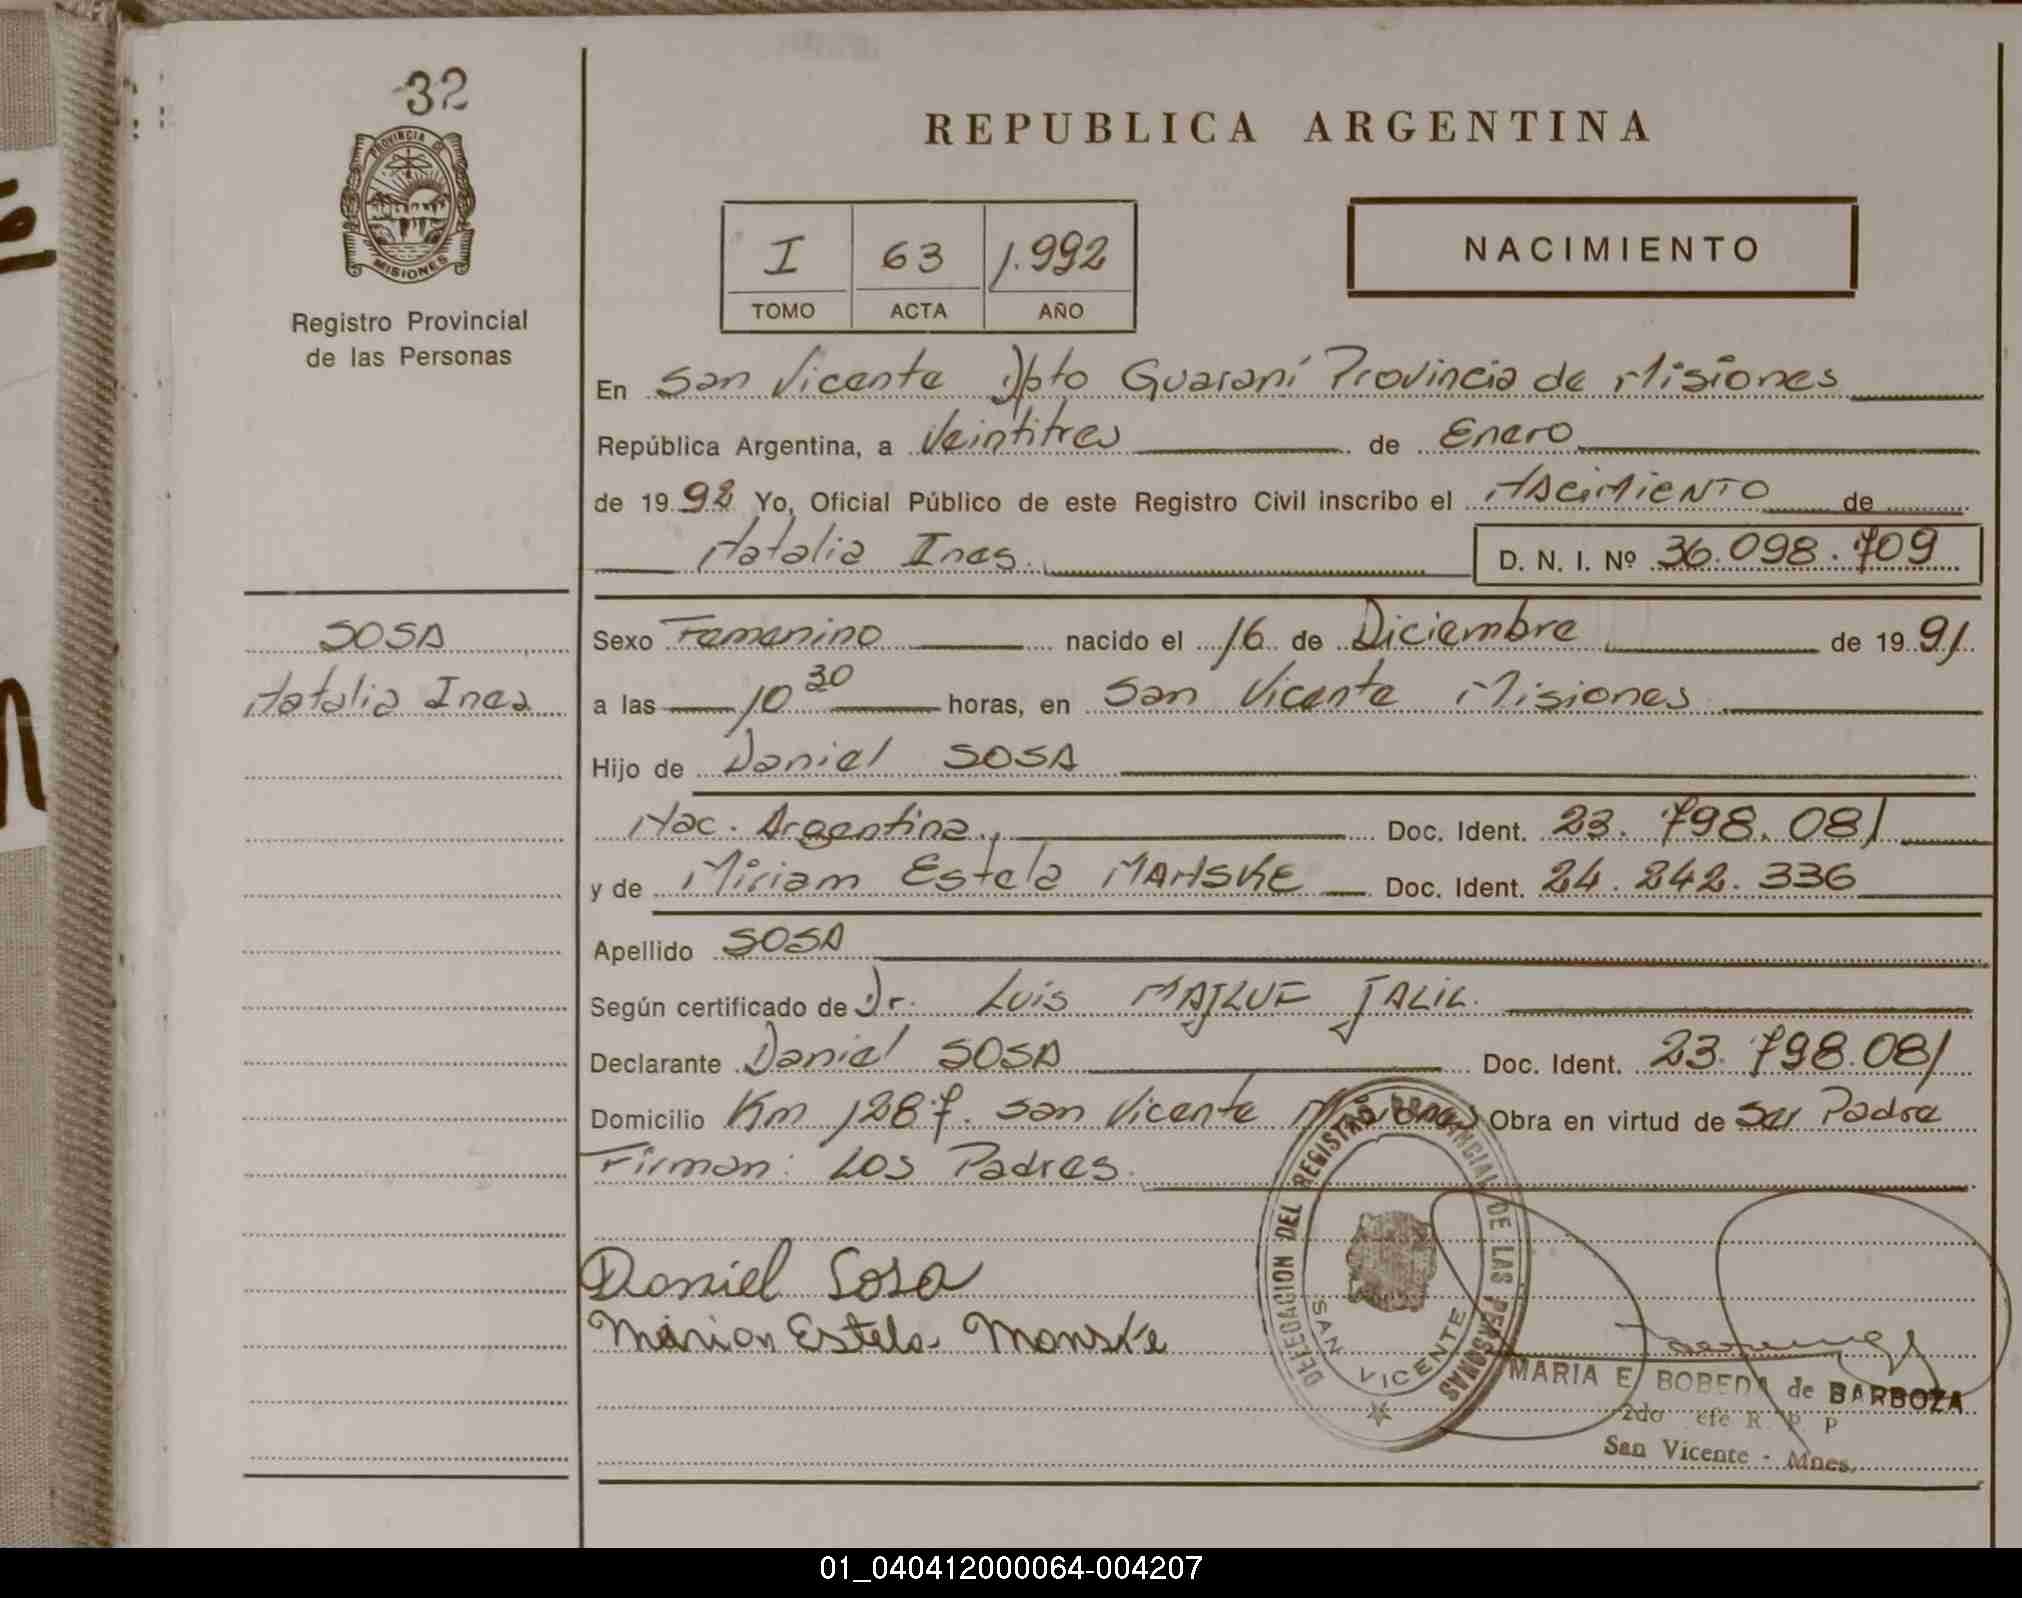 32
PROVINCIA DE
MISIONES
Registro Provincial
de las Personas
REPUBLICA ARGENTINA
I 63 1.992
TOMO ACTA AÑO
NACIMIENTO
En San Vicente Dpto Guaraní Provincia de Misiones
República Argentina, a Veintitres de Enero
de 1992 Yo, Oficial Público de este Registro Civil inscribo el NACIMIENTO de
Natalia Ines. D. N. I. Nº 36.098.709
SOSA
Natalia Ines
Sexo Femenino nacido el 16 de Diciembre de 1991
a las 10 30 horas, en San Vicente Misiones
Hijo de Daniel SOSA
Nac. Argentina, Doc. Ident. 23.798.081
y de Miriam Estela MANSKE Doc. Ident. 24.242.336
Apellido SOSA
Según certificado de Dr. Luis MAJLUF JALIL.
Declarante Daniel SOSA Doc. Ident. 23.798.081
Domicilio Km 1287. San Vicente Misiones Obra en virtud de Ser Padre
Firman: Los Padres.
Daniel Sosa
Mirian Estela Manske
DELEGACION DEL REGISTRO PROVINCIAL DE LAS PERSONAS
SAN VICENTE
MARIA E. BOBEDA de BARBOZA
2do efe R. P. P
San Vicente - Mnes.
01_040412000064-004207